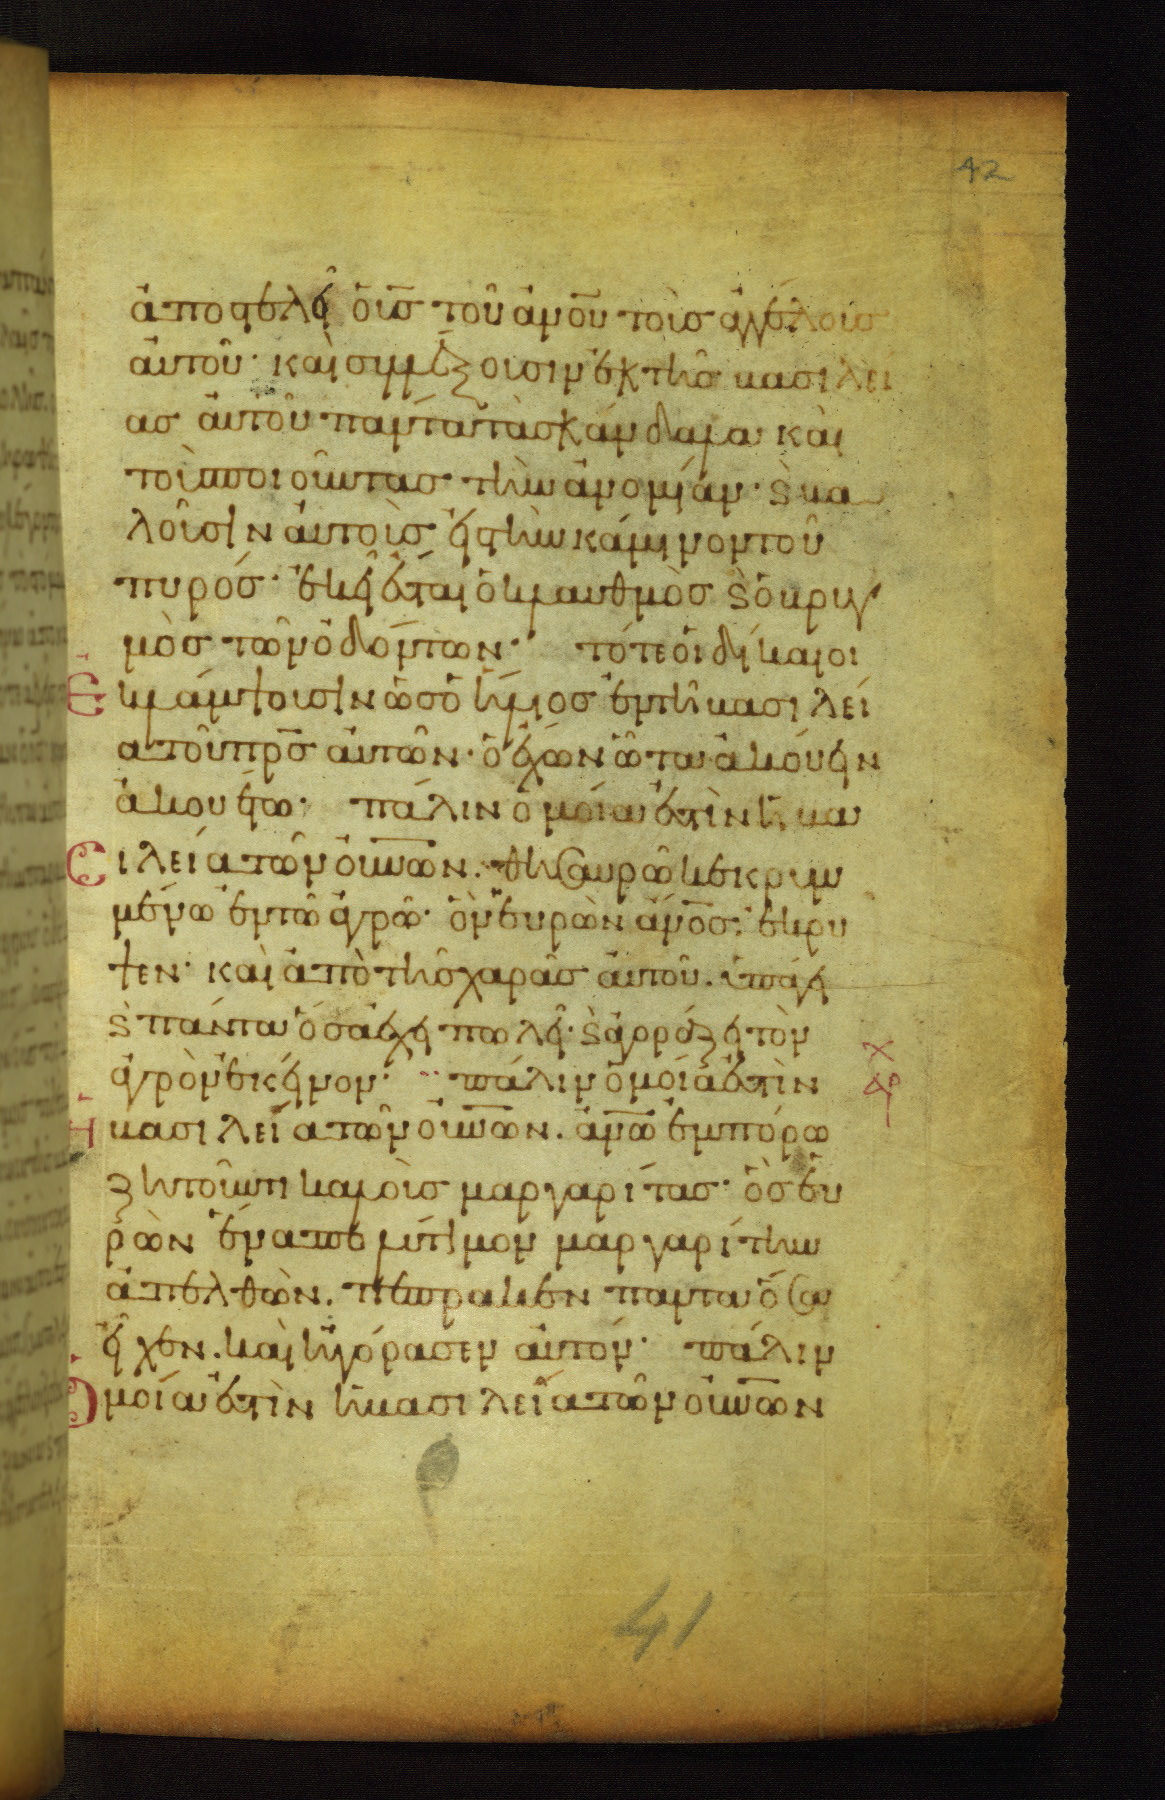 42
ἀποστελεῖ ὁ ῡς τοῦ ἀν̅ο̅υ τοὺς ἀγγέλους
αὐτοῦ· καὶ συλλέξουσιν ἐκ τῆς βασιλεί
ας αὐτοῦ πάντα τὰ σκάνδαλα καὶ
τοὺς ποιοῦντας τὴν ἀνομίαν· ϗ βα
λοῦσιν αὐτοὺς εἰς τὴν κάμινον τοῦ
πυρός· ἐκεῖ ἔσται ὁ κλαυθμὸς ϗ ὁ βρυγ
μὸς τῶν ὀδόντων· τότε οἱ δίκαιοι
Ἐκλάμψουσιν ὡς ὁ ἥλιος ἐν τῆ βασιλεί
α τοῦ π̅ρ̅ς αὐτῶν· ὁ ἔχων ὦτα ἀκούειν
ἀκουέτω· πάλιν ὁμοία ἐστὶν ἡ βα
Σιλεία τῶν οὐν̅ῶν. θησαυρῶ κεκρυμ
μένω ἐν τῶ ἀγρῶ· ὃν εὑρὼν ἄν̅ο̅ς· ἔκρυ
ψεν· καὶ ἀπὸ τῆς χαρᾶς αὐτοῦ. ὑπάγει
ϗ πάντα ὅσα ἔχει πωλεῖ· ϗ ἀγοράζει τὸν
ἀγρὸν ἐκεῖνον· πάλιν ὁμοία ἐστὶν
Ἡ βασιλεία τῶν οὐν̅ῶν. ἀν̅ω̅ ἐμπόρω
ζητοῦντι καλοὺς μαργαρίτας· ὃς εὑ
ρὼν ἕνα πολύτιμον μαργαρίτην
ἀπελθὼν. πέπρακεν παντα ὅσα
εἶχεν. καὶ ἠγόρασεν αὐτόν· πάλιν
Ὁμοία ἐστὶν ἡ βασιλεία τῶν οὐν̅ῶν
41